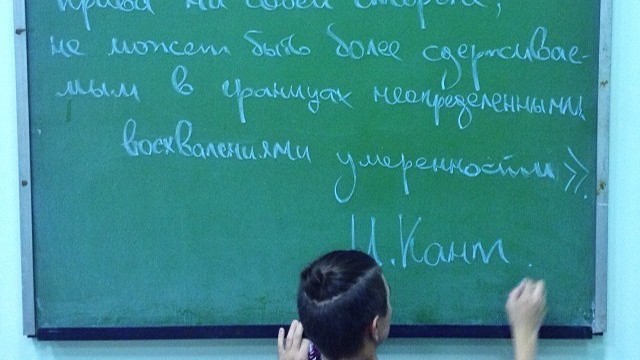 права на своей стороне,
не может быть более сдерживае-
мым в границах неопределенными
восхвалениями умеренности».
И. Кант.